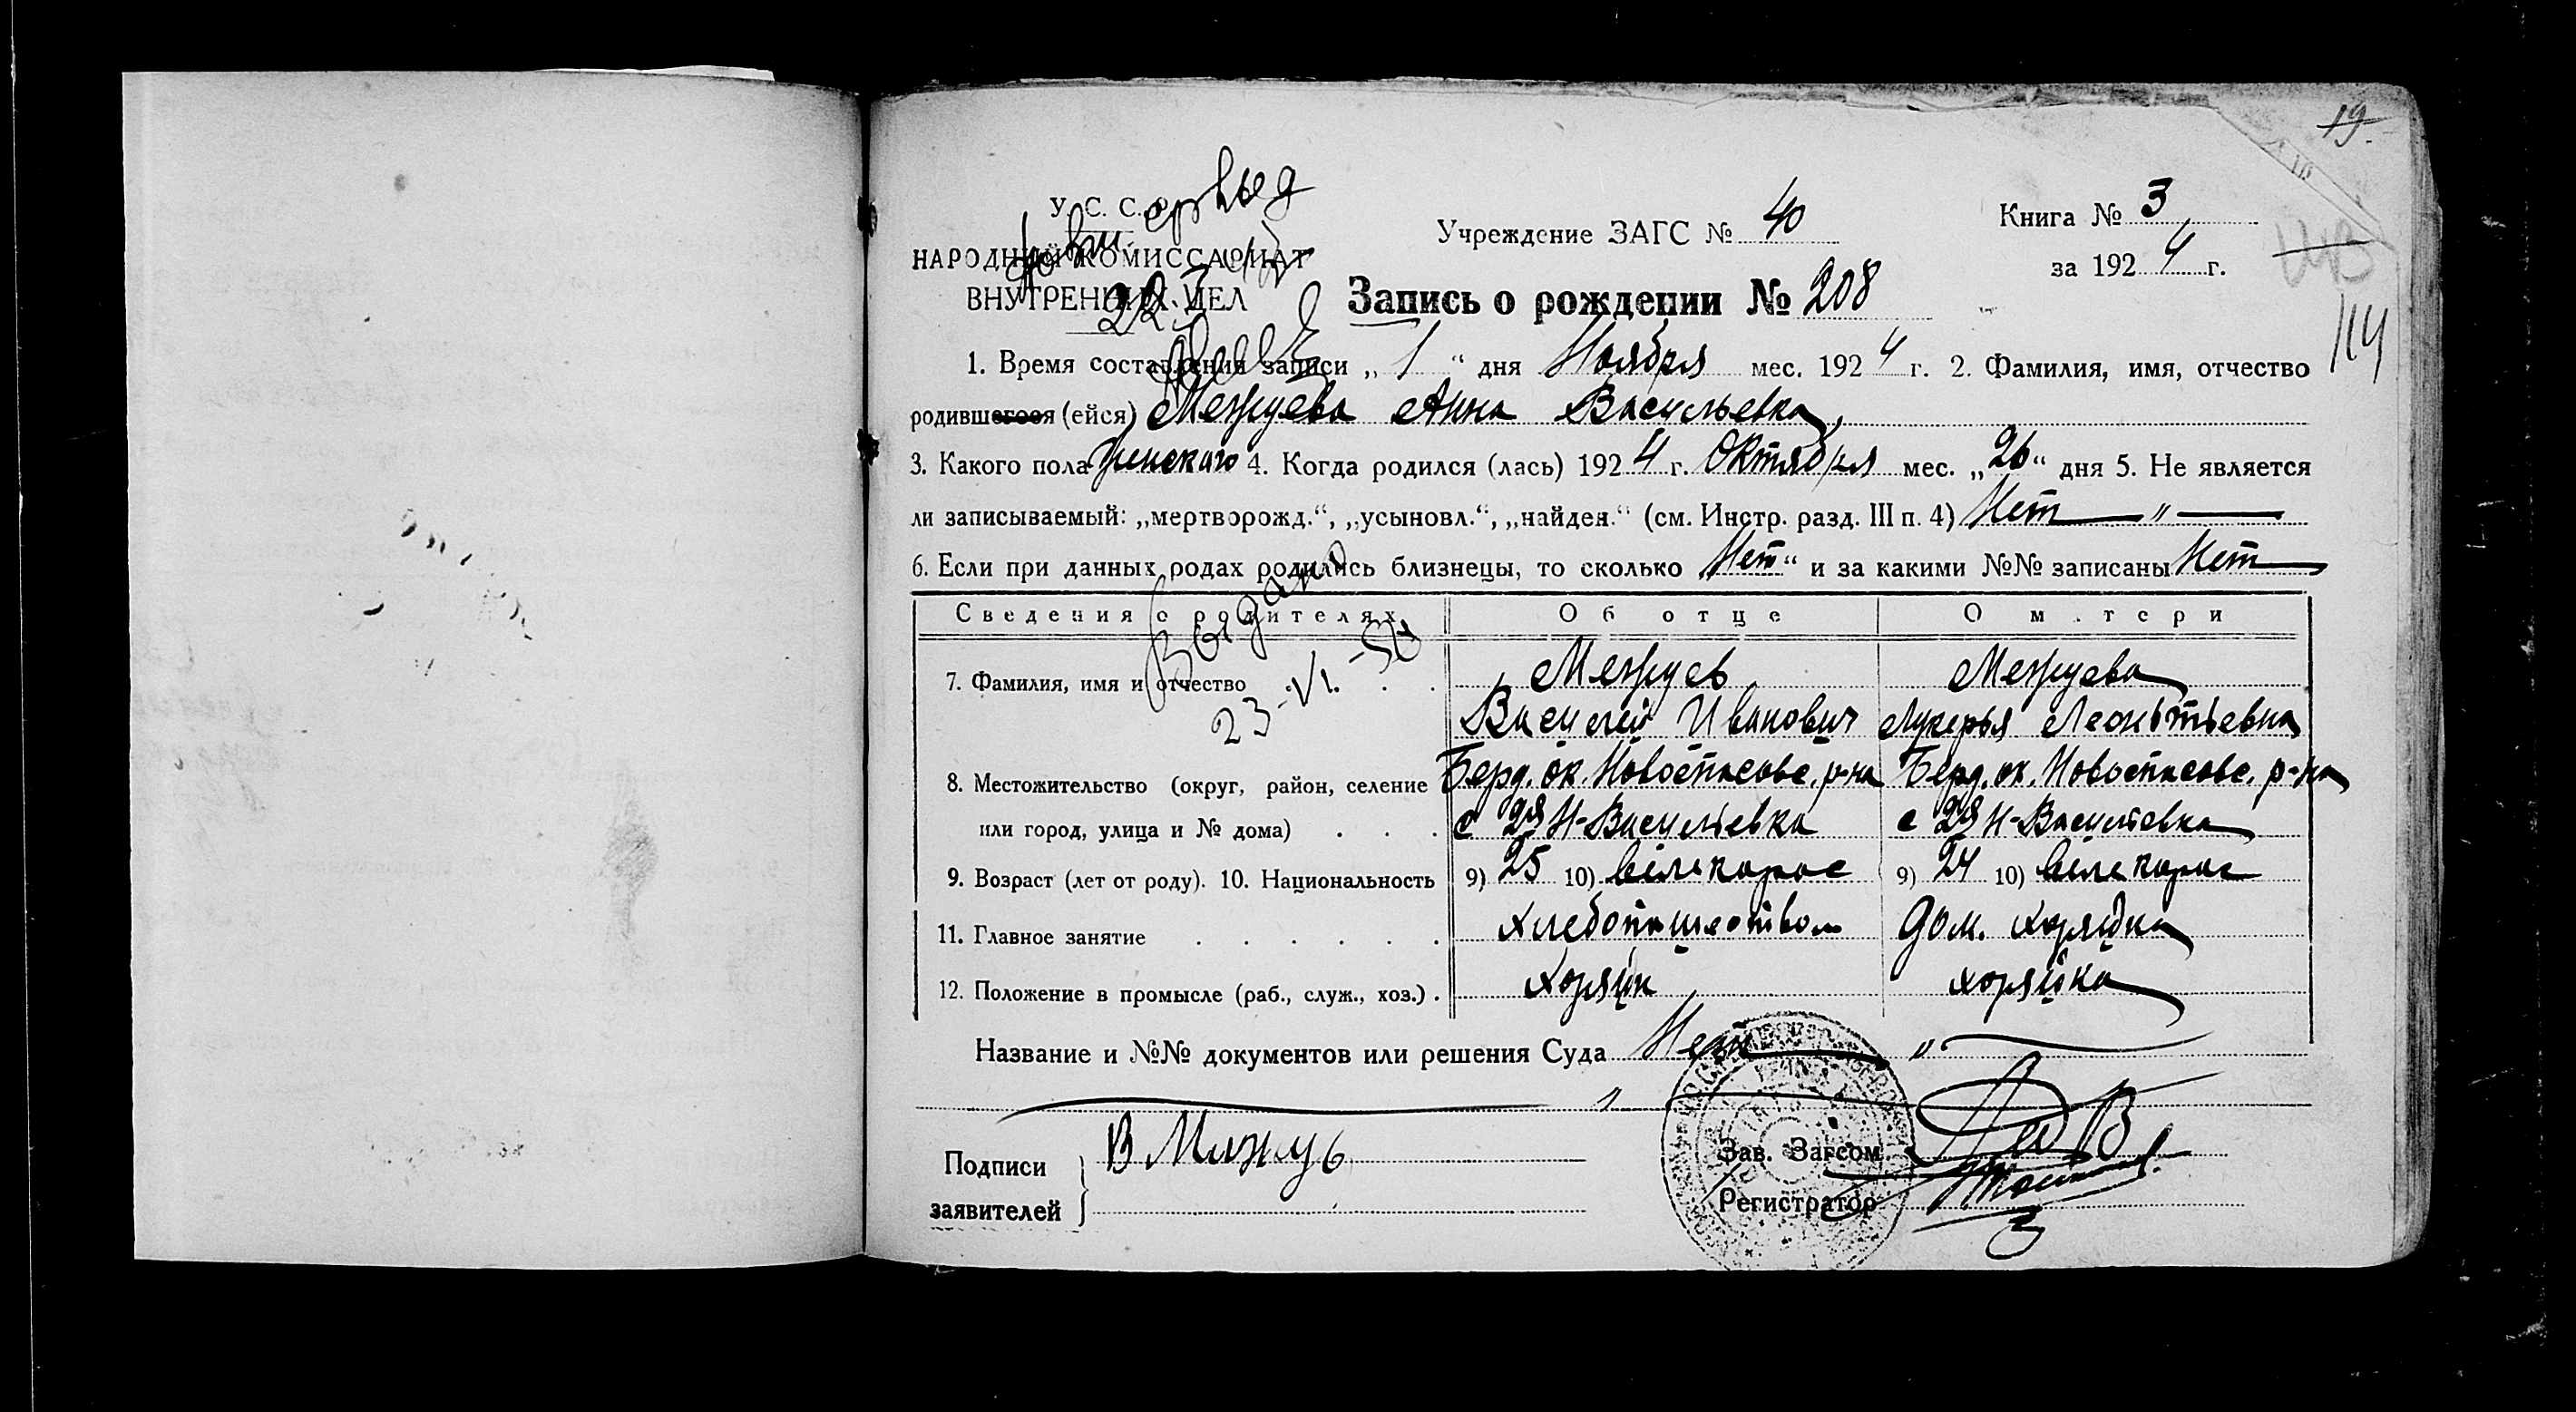 19.
У. С. С. Р.
НАРОДНЫЙ КОМИССАРИАТ
ВНУТРЕННИХ ДЕЛ
Учреждение ЗАГС № 40
Книга № 3
за 1924 г.
Запись о рождении № 208
114
1. Время составления записи „ 1 “ дня Ноября мес. 1924 г. 2. Фамилия, имя, отчество
родившегося (ейся) Межуева Анна Васильевна,
3. Какого пола женскаго 4. Когда родился (лась) 1924 г. Октября мес. „26“ дня 5. Не является
ли записываемый: „мертворожд.“, „усыновл.“, „найден.“ (см. Инстр. разд. III п. 4) Нет — „ —
6. Если при данных родах родились близнецы, то сколько „Нет“ и за какими №№ записаны Нет
Выдано
23-VI-50
Сведения о родителях Об отце О м.тери
7. Фамилия, имя и отчество . . . Межуев Межуева
Василий Иванович Лукерья Леонтьевна
8. Местожительство (округ, район, селение Берд. ок. Новоспасовс. р-на Берд. ок. Новоспасовс. р-на
или город, улица и № дома) . . . с Н-Васильевка с Н-Васильевка
9. Возраст (лет от роду). 10. Национальность 9) 25 10) великорос 9) 24 10) великорос
11. Главное занятие . . . . . . Хлебопашеством Дом. хозяйка
12. Положение в промысле (раб., служ., хоз.) . Хозяин хозяйка
Название и №№ документов или решения Суда Нет „
Подписи заявителей
В Межуев
Зав. Загсом
Регистратор